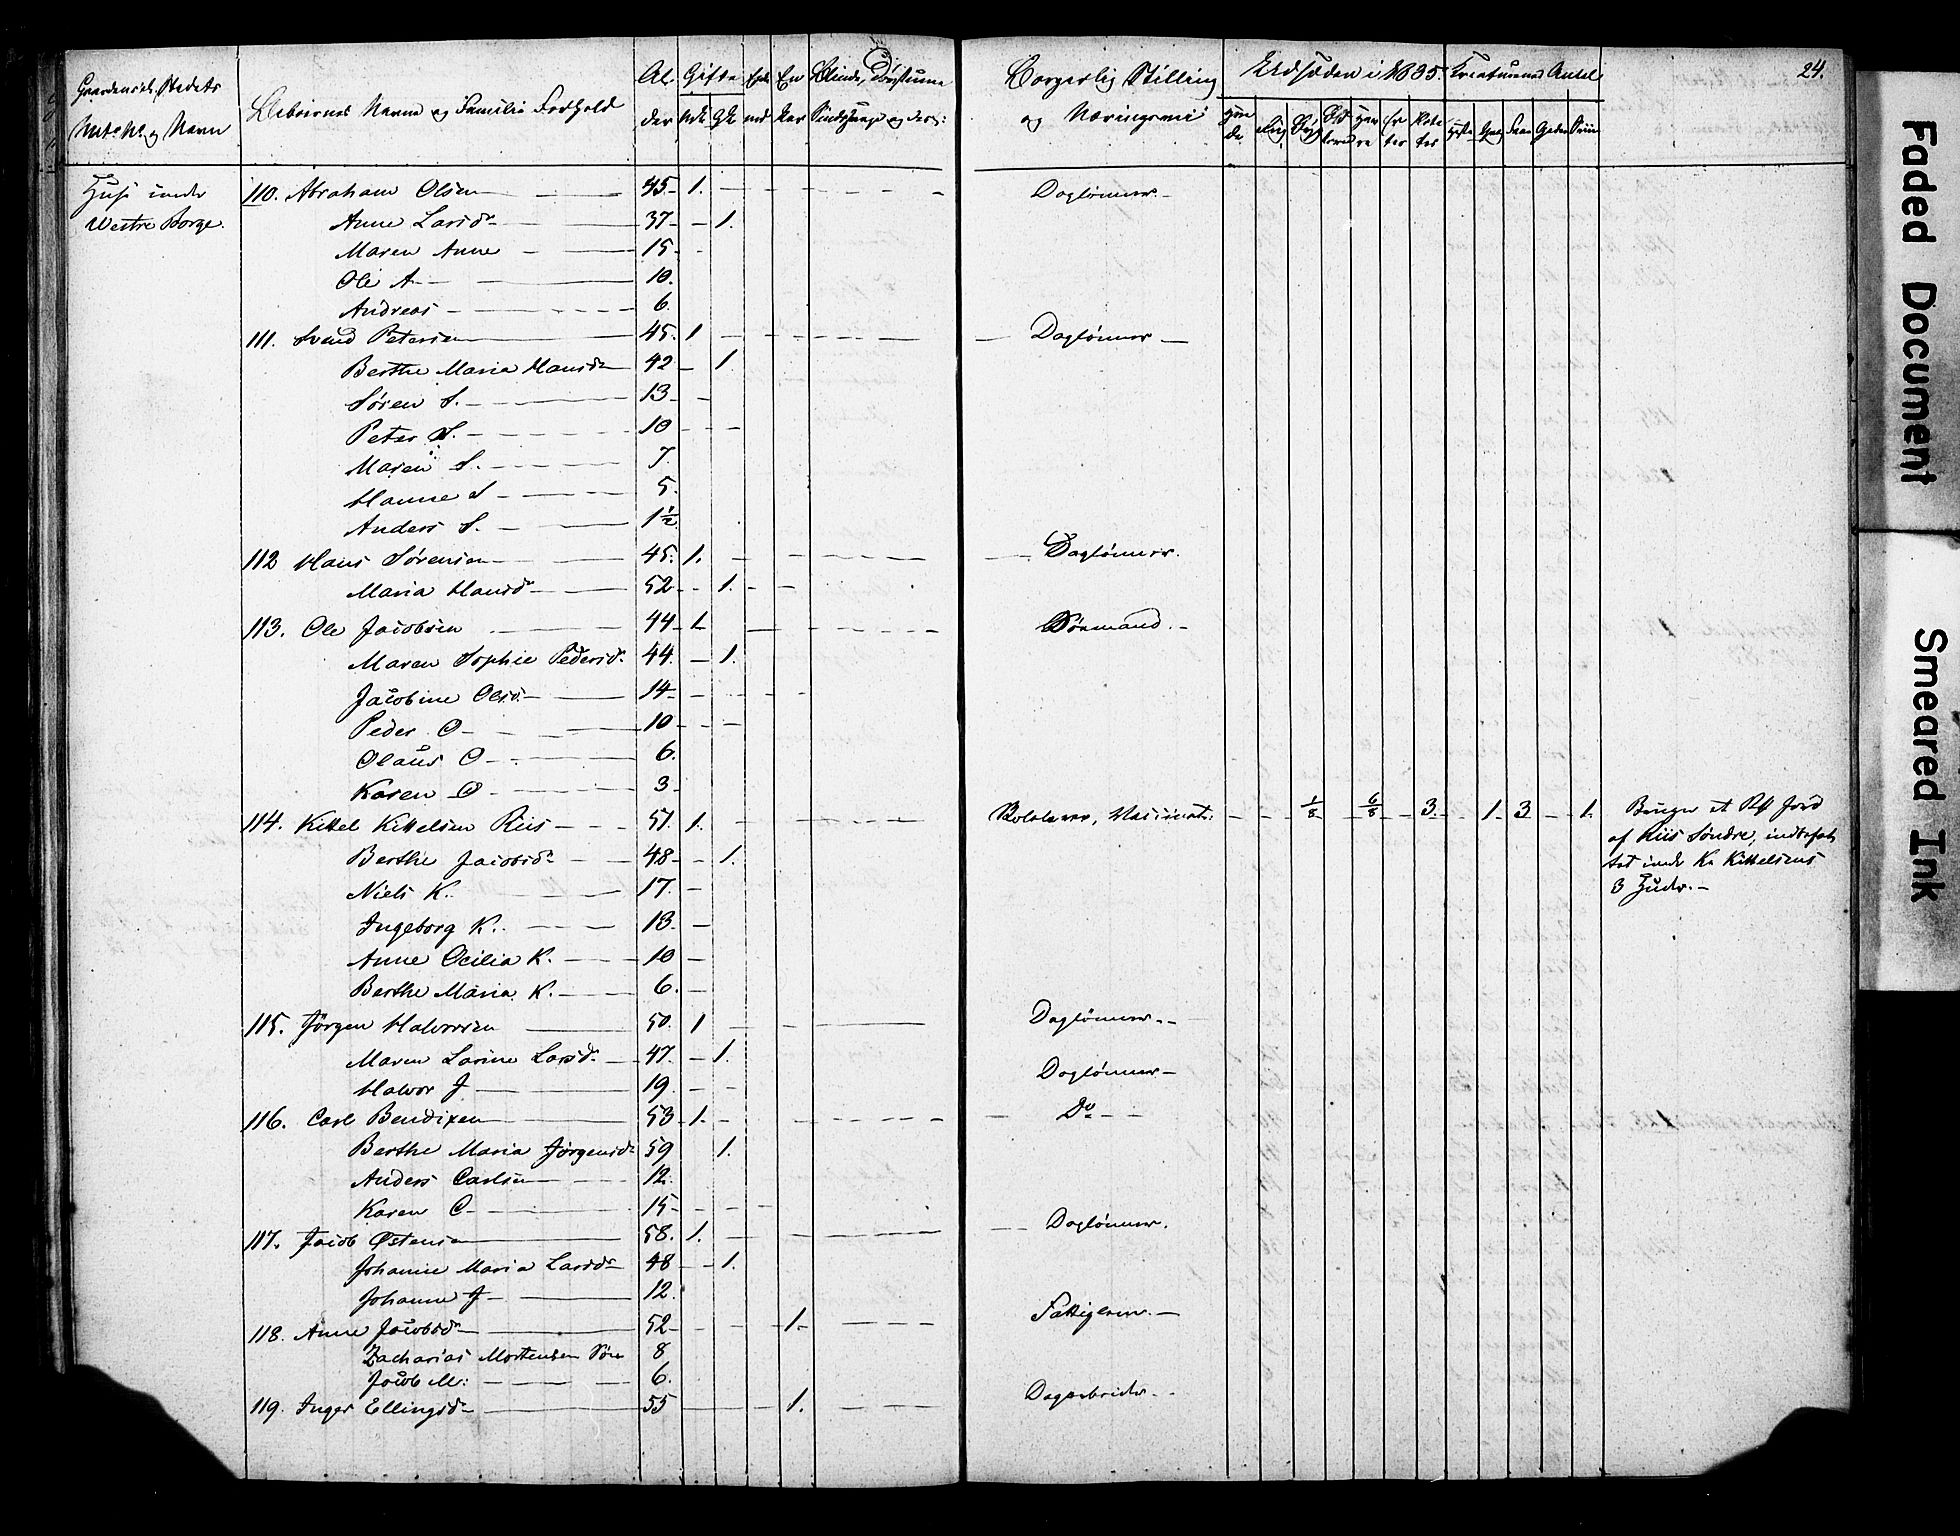 24.
Gaardens el. Stedets
Matr. № og Navn
Beboernes Navne og Familie Forhold
Al-
der
Gifte
Blinde, Døvstumme
Sindssvage og
Borgerlig Stilling
og Næringsvei
Udsæden i 1835.
Kreaturernes Antal
Huse under
Westre Borge.
110. Abraham Olsen 45 1. Daglønner
Anne Larsd. 37 1.
Maren Anne 15
Ole A 10.
Andreas 6
111. Svend Petersen 45. 1 Daglønner
Berthe Maria Hansd. 42 1.
Søren S. 13
Peter S. 10
Maren S. 7.
Hanne S 5.
Anders S. 1½
112 Hans Sørensen 45. 1. Daglønner.
Maria Hansd 52 1.
113. Ole Jacobsen 44 1 Sømand.
Maren Sophie Pedersd. 44. 1.
Jacobine Olsd. 14
Peder O 10
Olaus O 6.
Karen O 3
114. Kittel Kittelsen Riis 51. 1. 1/8 6/8 3. 1 3 1.
Bruger et St. Jord
af Riis Søndre, indbefat-
tet under K. Kittelsens
3 Huder.
Berthe Jacobsd. 48 1.
Niels K. 17.
Ingeborg K. 13.
Anne Cicilia K. 10
Berthe Maria K. 6.
115. Jørgen Halvorsen 50. 1 Daglønner
Maren Larine Larsd. 47. 1.
Halvor J 19. Daglønner
116. Carl Bendixen 53 1. Do
Berthe Maria Jørgensd. 59 1.
Anders Carlsen 12.
Karen C 15
117. Jacob Østensen 58. 1. Daglønner.
Johanne Maria Larsd. 48 1.
Johanne J 12.
118. Anne Jacobsd. 52 1. Fattiglem.
Zacharias Mortensen Søn 8
Jacob M: 6.
119. Inger Ellingsd. 55 1. Dagarbeider
Faded Document
Smeared Ink